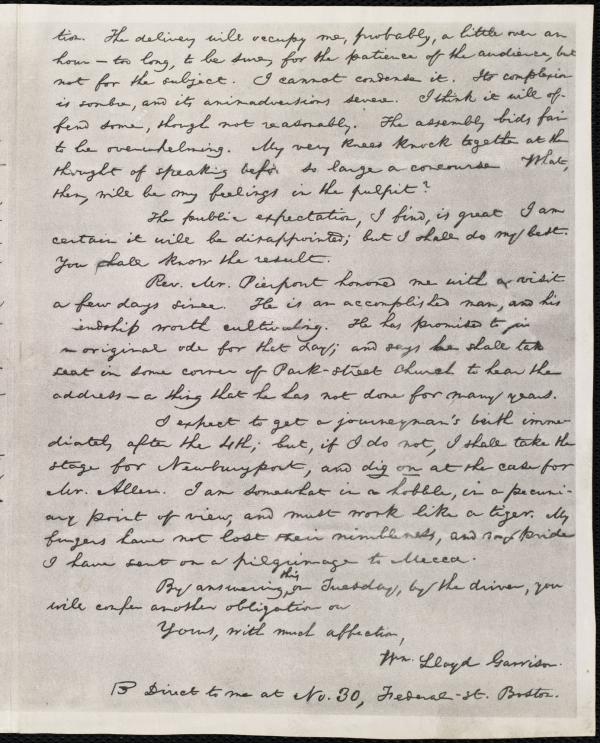 tion. The delivery will occupy me, probably, a little over an
hour — too long, to be sure, for the patience of the audience, but
not for the subject. I cannot condense it. Its complexion
is sombre, and its animadversions severe. I think it will of-
fend some, though not reasonably. The assembly bids fair
to be overwhelming. My very knees knock together at the
thought of speaking before so large a concourse What,
then, will be my feelings in the pulpit?
The public expectation, I find, is great I am
certain it will be disappointed; but I shall do my best.
You shall know the result.
Rev. Mr. Pierpont honored me with a visit
a few days since. He is an accomplished man, and his
iendship worth cultivating. He has promised to
n original ode for that day; and says he shall take
seat in some corner of Park-street Church to hear the
address — a thing that he has not done for many years.
I expect to get a journeyman's berth imme-
diately after the 4th; but, if I do not, I shall take the
stage for Newburyport, and dig on at the case for
Mr. Allen. I am somewhat in a hobble, in a pecuni-
ary point of view, and must work like a tiger. My
fingers have not lost their nimbleness, and my pride
I have sent on a pilgrimage to Mecca.
By answering this on Tuesday, by the driver, you
will confer another obligation on
Yours, with much affection,
Wm. Lloyd Garrison.
Direct to me at No. 30, Federal-st. Boston.